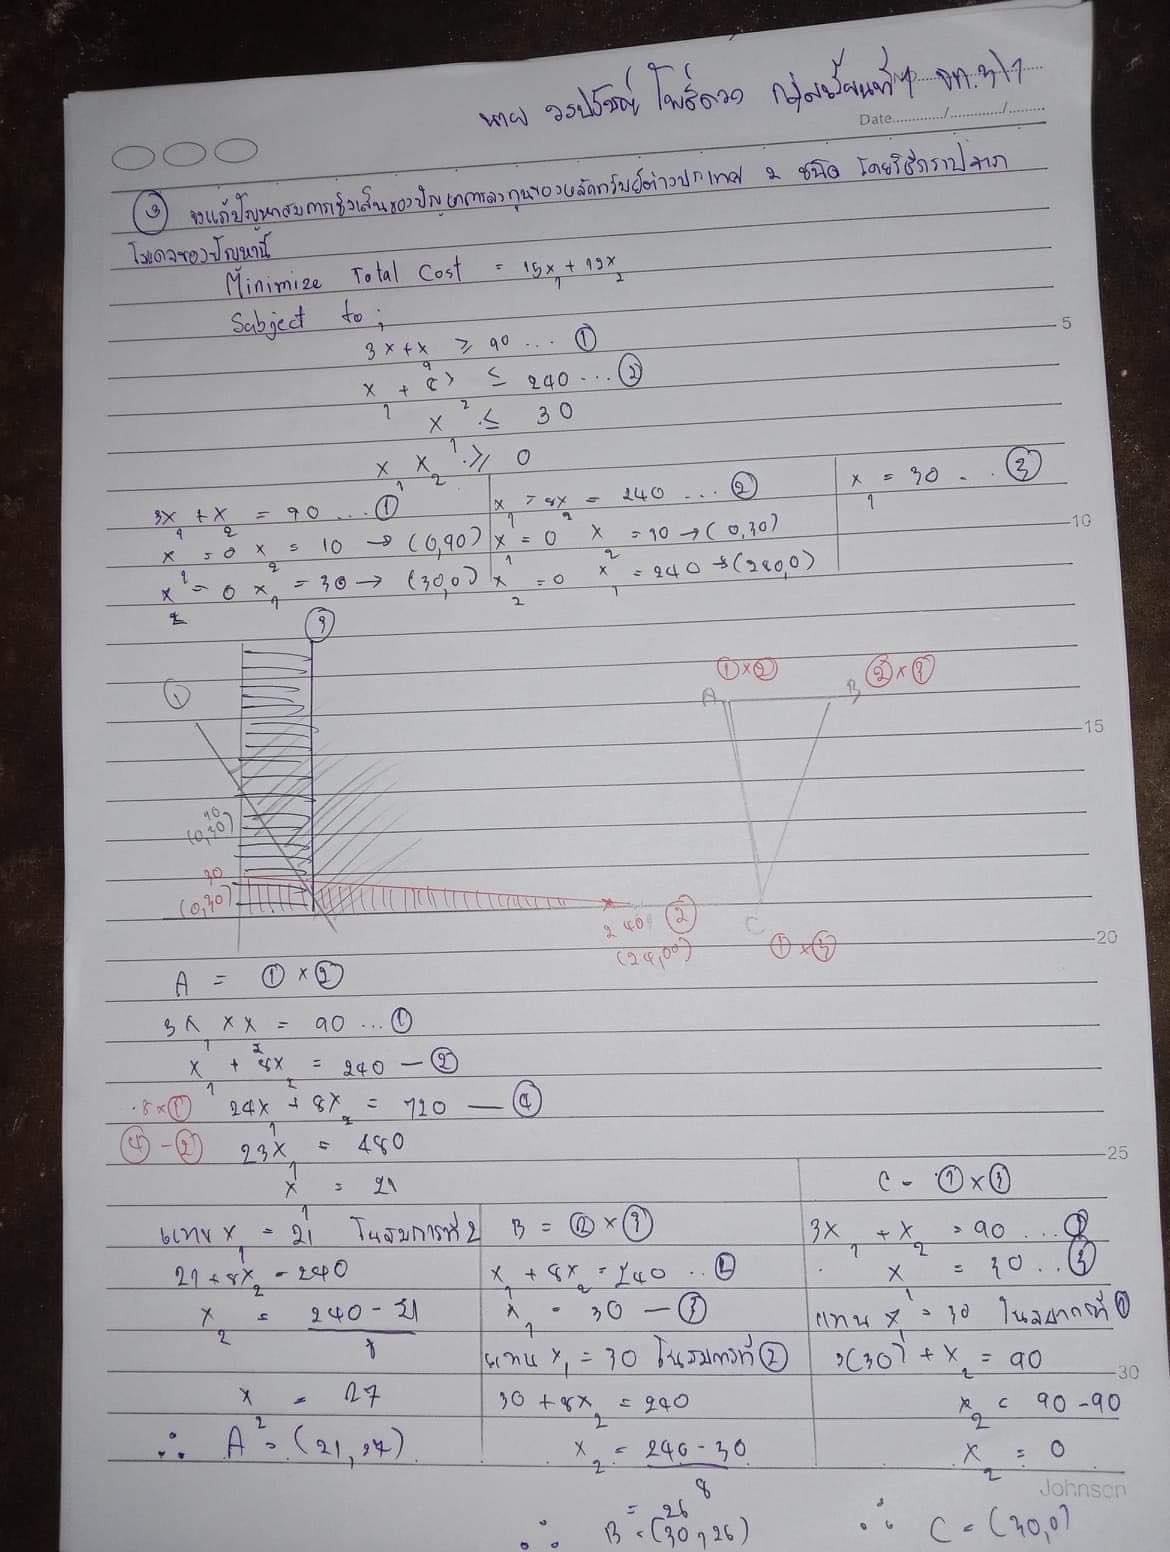 นาย วรปรัชญ์ โพธิ์ดวง กลุ่มเรียนที่ 1
Date
③ จงแก้ปัญหาสมการเชิงเส้นของปัญหาการลงทุนของหลักทรัพย์ต่างประเทศ 2 ชนิด โดยวิธีกราปจาก
โมเดลของปัญหานี้
Minimize Total Cost = 15x₁ + 19x₂
Subject to;
3x + x ≥ 90 ... ①
x₁ + 8x₂ ≤ 240 ... ②
x₁ ≤ 30
x₁ x₂ ≥ 0
3x₁ + x₂ = 90 ... ①
x₁ = 0 x₂ = 10 → (0,90)
x₂ = 0 x₁ = 30 → (30,0)
x₁ + 8x₂ = 240 ... ②
x₁ = 0 x₂ = 30 → (0,30)
x₂ = 0 x₁ = 240 → (240,0)
x₁ = 30 ... ③
③
①
90
(0,30)
30
(0,30)
240
②
(24,00)
①×②
A
B
②×③
C
①×③
A = ①×②
3x₁ + x₂ = 90 ... ①
x₁ + 8x₂ = 240 — ②
8×① 24x₁ + 8x₂ = 720 — ④
④-② 23x₁ = 480
x₁ = 21
แทน x₁ = 21 ในสมการที่ 2
21 + 8x₂ = 240
x₂ = 240 - 21
8
x₂ = 27
∴ A = (21, 27)
B = ②×③
x₁ + 8x₂ = 240 .. ②
x₁ = 30 — ③
แทน x₁ = 30 ในสมการที่ ②
30 + 8x₂ = 240
x₂ = 240 - 30
8
= 26
∴ B = (30, 26)
C = ①×③
3x₁ + x₂ = 90 ... ①
x₁ = 30 .. ③
แทน x₁ = 30 ในสมการที่ ①
3(30) + x₂ = 90
x₂ = 90 - 90
x₂ = 0
∴ C = (30,0)
5
10
15
20
25
30
Johnson